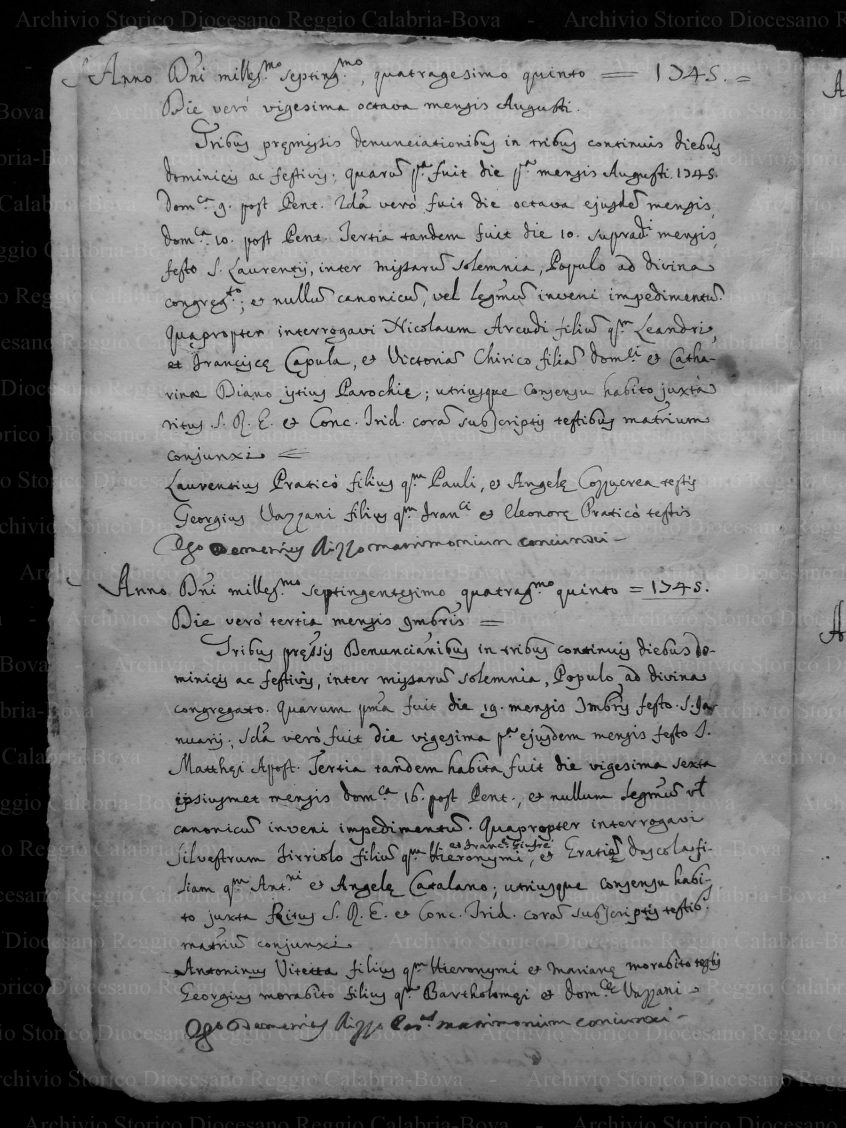 Anno Dñi milles.mo septing.mo, quatragesimo quinto = 1745. =
Die veró vigesima octava mensis Augusti.
Tribus pręmissis denunciationibus in tribus continuis diebus
dominicis ac festivis; quarum p.a fuit die p.a mensis Augusti 1745.
Dom.ca 9. post Pent. 2da veró fuit die octava ejusdem mensis,
dom.ca 10. post Pent. Tertia tandem fuit die 10. supradi mensis,
festo S. Laurentij, inter missarum solemnia, Populo ad divina
congreg.to; et nullum canonicum, vel legmum inveni impedimentum.
Quapropter interrogavi Nicolaum Arcudi filium qm Leandri,
et Franciscę Capula, et Victoriam Chirico filiam Dom.ci et Catha-
rinæ Diano istius Parochię; utriusque consensu habito juxta
ritus S. R. E. et Conc. Trid. coram subscriptis testibus matrium
conjunxi
Laurentius Praticó filius qm Pauli, et Angelę testis
Georgius Vazzani filius qm Fran.ci et Eleonorę Praticó testis
Ego Demetrius Rizzo matrimonium coniunxi -
Anno Dñi milles.mo septingentesimo quatrag.mo quinto = 1745.
Die veró tertia mensis 9mbris =
Tribus pręssis Denuncianibus in tribus continuis diebus do-
minicis ac festivis, inter missarum solemnia, Populo ad divina
congregato. Quarum pma fuit die 19. mensis 7mbris festo S. Ja-
nuarij; 2da veró fuit die vigesima p.a ejusdem mensis festo S.
Matthęi Apost. Tertia tandem habita fuit die vigesima sexta
ipsiusmet mensis dom.ca 16. post Pent., et nullum legmum vl
canonicum inveni impedimentum. Quapropter interrogavi
et Franc.ę Giufrè
Silvestrum Tirriolo filium qm Hieronymi, et Gratiam Dascola fi-
liam qm Ant.ni et Angelę Catalano; utriusque consensu habi-
to juxta Ritus S. R. E. et Conc. Trid. coram subscriptis testibs
matrium conjunxi
Antoninus Vitetta filius qm Hieronymi et Marianę morabito testis
Georgius morabito filius qm Bartholomęi et dom.cę Vazzani -
Ego Demetrius Rizzo matrimonium coniunxi -